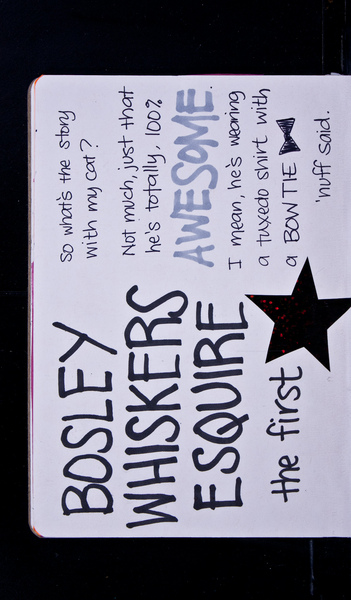 BOSLEY
WHISKERS
ESQUIRE
the first
So what's the story
with my cat?
Not much, just that
he's totally, 100%
AWESOME.
I mean, he's wearing
a tuxedo shirt with
a BOWTIE
'nuff said.